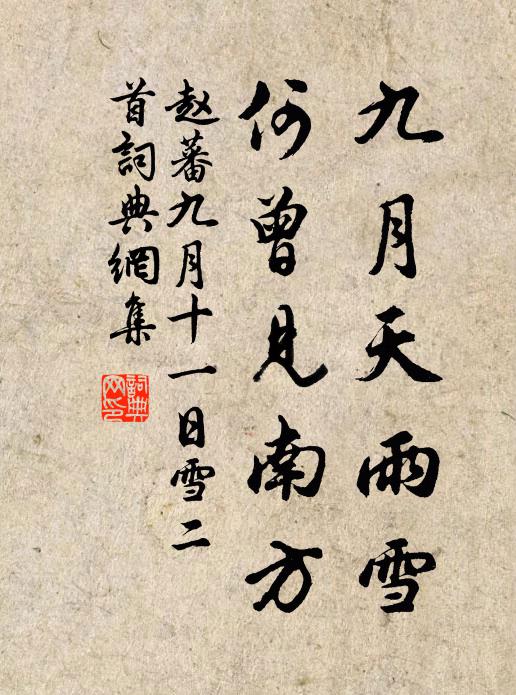 九月天雨雪
何曾見南方
赵蕃九月十一日雪二
首詞典網集
詞典
网印